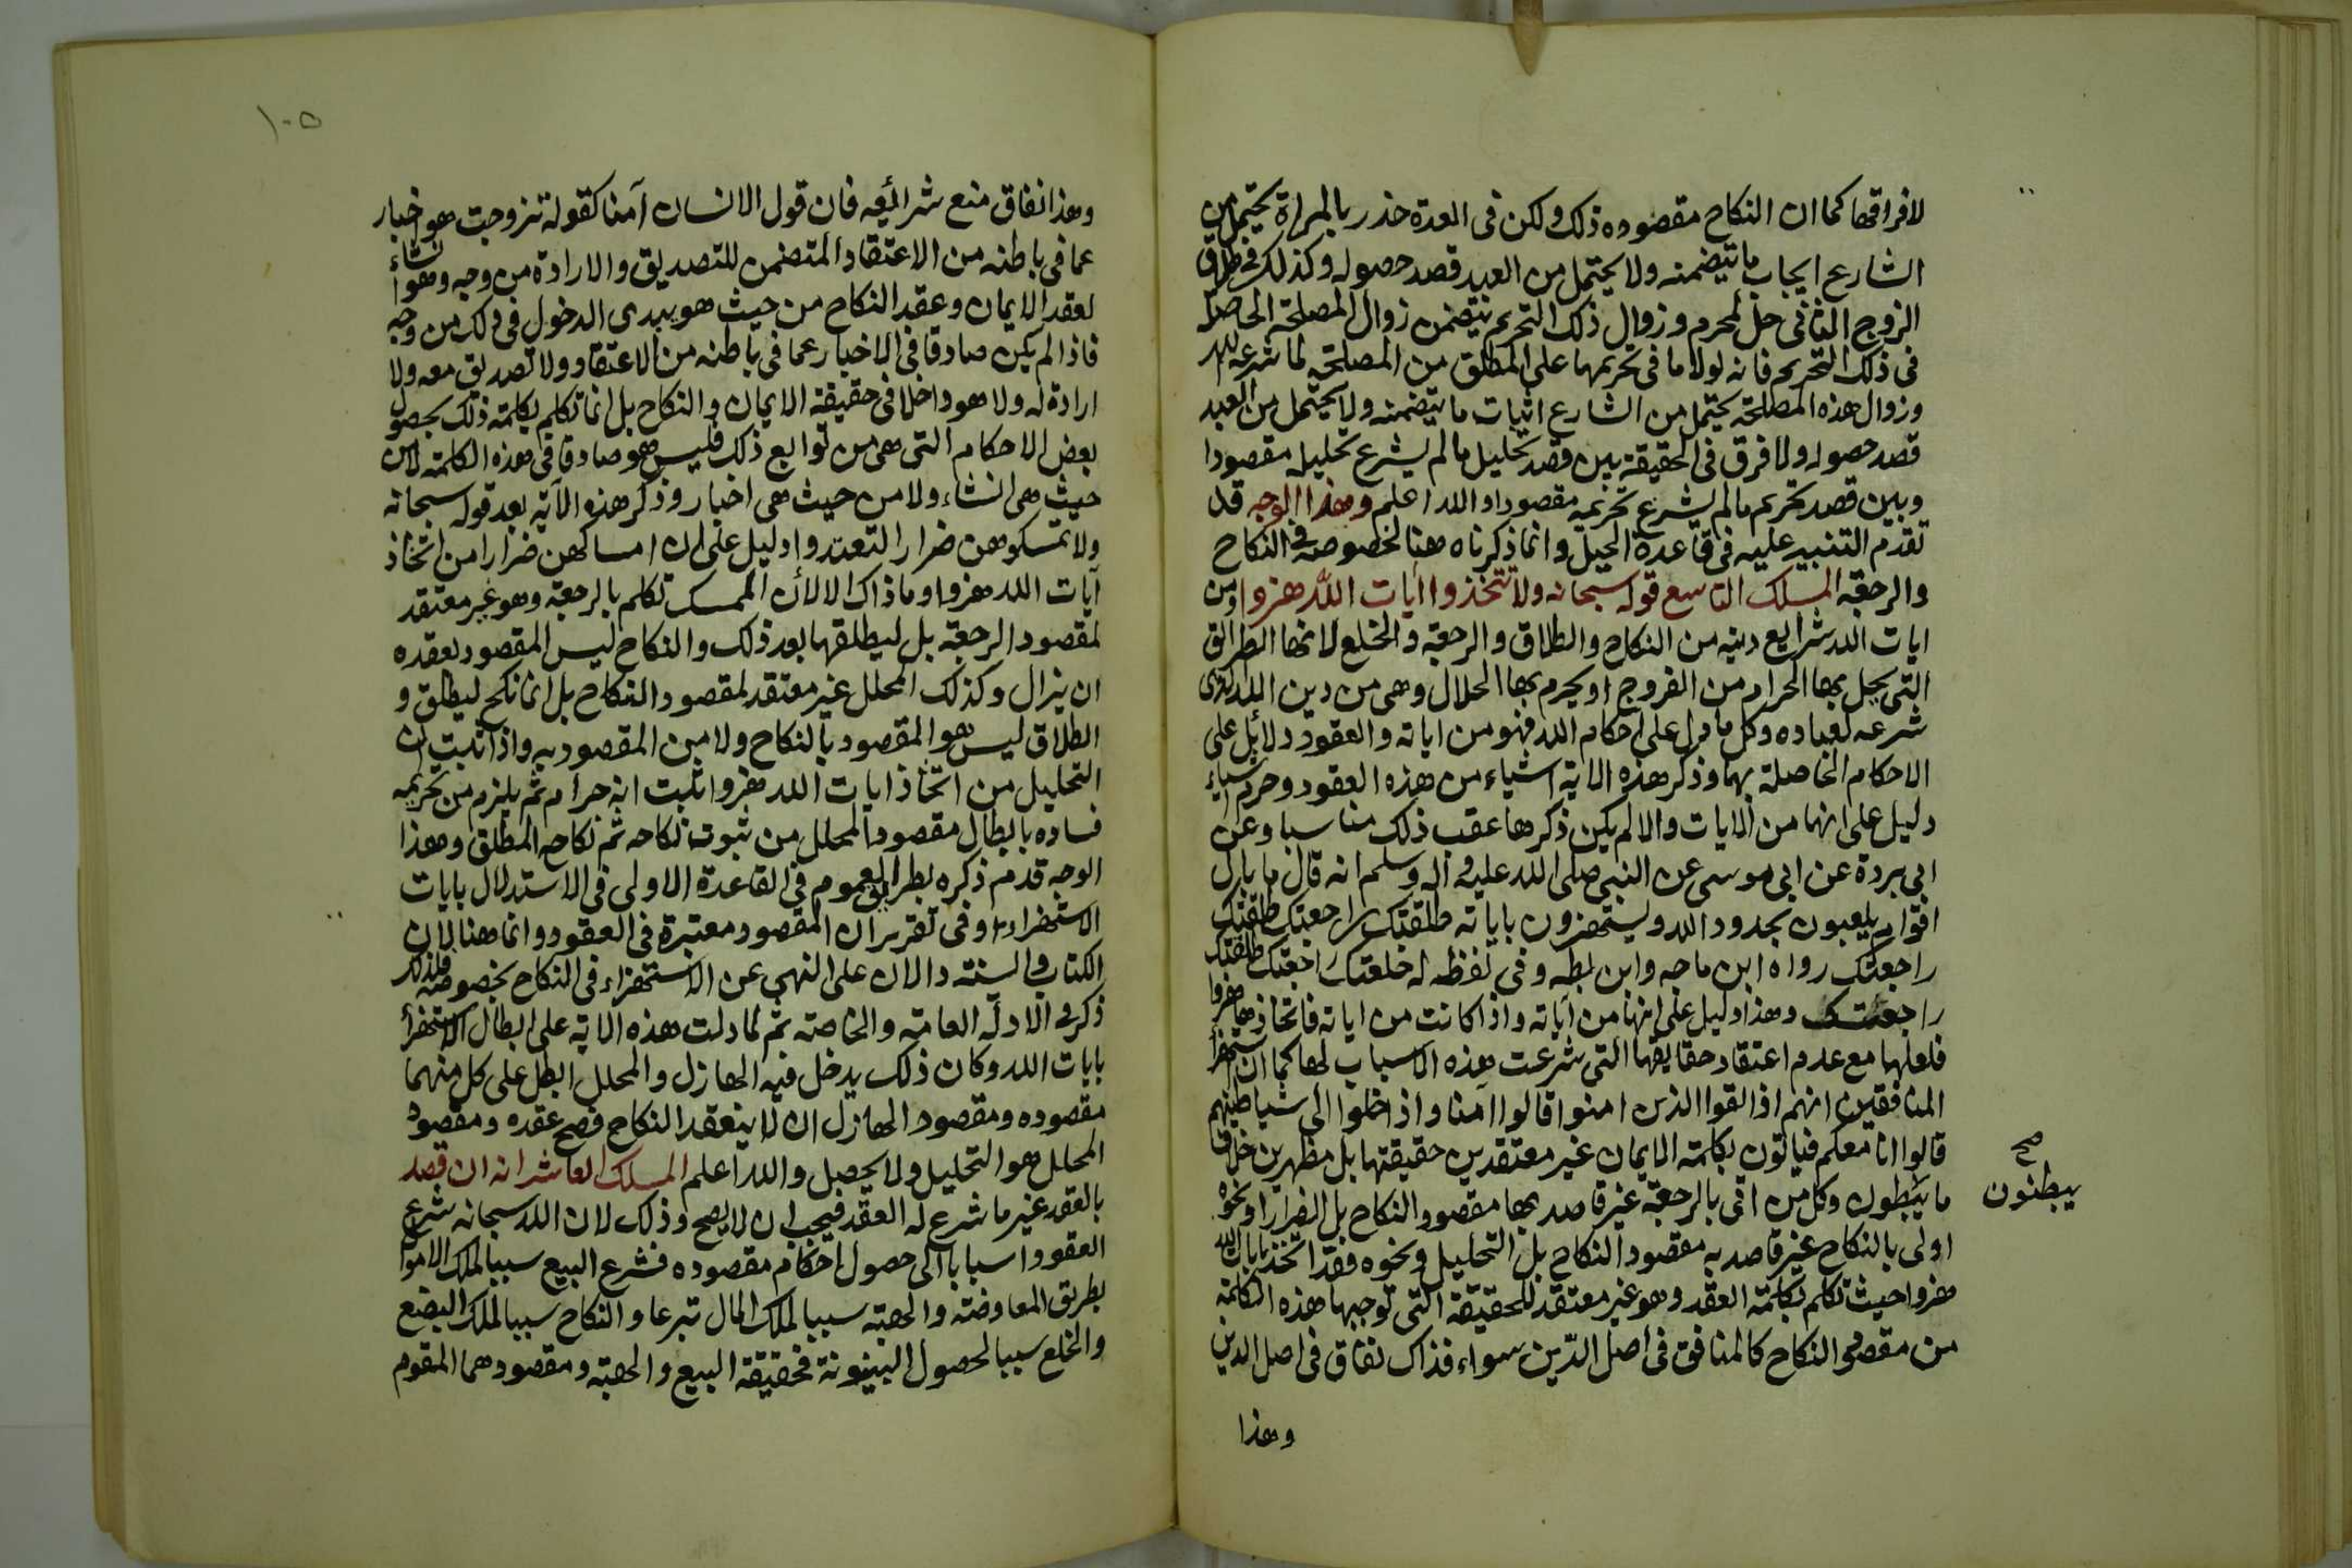 لافراقها كما ان النكاح مقصوده ذلك ولكن فى العدة ضرر بالمراة يحتمل من
الشارع ايجاب ما يتضمنه ولا يحتمل من العبد قصد حصوله وكذلك فى طلاق
الزوج الثانى حل لمحرم وزوال ذلك التحريم يتضمن زوال المصلحة الحاصلة
فى ذلك التحريم فانه لولا ما فى تحريمها على المطلق من المصلحة لما شرعه الله
وزوال هذه المصلحة يحتمل من الشارع اثبات ما يتضمنه ولا يحتمل من العبد
قصد حصوله ولا فرق فى الحقيقة بين قصد تحليل مالم يشرع تحليله مقصودا
وبين قصد تحريم مالم يشرع تحريمه مقصودا والله اعلم وهذا الوجه قد
تقدم التنبيه عليه فى قاعدة الحيل وانما ذكرناه هنا لخصوصه فى النكاح
والرجعة المسلك التاسع قوله سبحانه ولا تتخذوا ايات الله هزوا ومن
ايات الله شرايع دينه من النكاح والطلاق والرجعة والخلع لانها الطرائق
التى يحل بها الحرام من الفروج او يحرم بها الحلال وهى من دين الله الذى
شرعه لعباده وكل ما دل على احكام الله فهو من اياته والعقود دلائل على
الاحكام الحاصلة بها وذكر هذه الاية اشياء من هذه العقود وحرم اشياء
دليل على انها من الايات والا لم يكن ذكرها عقب ذلك مناسبا وعن
ابى بردة عن ابى موسى عن النبى صلى الله عليه وآله وسلم انه قال ما بال
اقوام يلعبون بحدود الله ويستهزون باياته طلقتك راجعتك طلقتك
راجعتك رواه ابن ماجه وابن بطه وفى لفظ له خلعتك راجعتك طلقتك
راجعتك وهذا دليل على انها من آياته واذا كانت من اياته فاتخاذها هزوا
فعلها مع عدم اعتقاد حقايقها التى شرعت هذه الاسباب لها كما ان استهزأ
المنافقين انهم اذا لقوا الذين امنوا قالوا آمنا واذا خلوا الى شياطينهم
قالوا انا معكم فياتون بكلمة الايمان غير معتقدين حقيقتها بل مظهرين خلاف
ما يبطون وكل من اتى بالرجعة غير قاصد بها مقصود النكاح بل الضرار او نحوه
يبطنون صح
اولى بالنكاح غير قاصد به مقصود النكاح بل التحليل ونحوه فقد اتخذ بايات الله
هزوا حيث تكلم بكلمة العقد وهو غير معتقد للحقيقة التى توجبها هذه الكلمة
من مقصود النكاح كالمنافق فى اصل الدّين سواء فذاك نفاق فى اصل الدين
وهذا
١٠٥
وهذا نفاق منع شرائعه فان قول الانسان آمنا كقوله تزوجت هو اخبار
عما فى باطنه من الاعتقاد المتضمن للتصديق والارادة من وجه وهو انشاء
لعقد الايمان وعقد النكاح من حيث هو يبدى الدخول فى ذلك من وجه
فاذا لم يكن صادقا فى الاخبار عما فى باطنه من الاعتقاد ولا تصديق معه ولا
ارادة له ولا هو داخلا فى حقيقة الايمان والنكاح بل انما تكلم بكلمة ذلك بحصول
بعض الاحكام التى هى من توابع ذلك فليس هو صادقا فى هذه الكلمة لا من
حيث هى انشاء ولا من حيث هى اخبار وذكر هذه الآية بعد قوله سبحانه
ولا تمسكوهن ضرارا لتعتدوا دليل على ان امساكهن ضرارا من اتخاذ
آيات الله هزوا وما ذاك الا لأن الممسك تكلم بالرجعة وهو غير معتقد
لمقصود الرجعة بل ليطلقها بعد ذلك والنكاح ليس المقصود بعقده
ان يزال وكذلك المحلل غير معتقد لمقصود النكاح بل انما نكح ليطلق و
الطلاق ليس هو المقصود بالنكاح ولا من المقصود به واذا ثبت ان
التحليل من اتخاذ ايات الله هزوا ثبت انه حرام ثم يلزم من تحريمه
فساده بابطال مقصود المحلل من ثبوت نكاحه ثم نكاح المطلق وهذا
الوجه قد مر ذكره بطريق العموم فى القاعدة الاولى فى الاستدلال بايات
الاستهزاء وفى تقرير ان المقصود معتبرة فى العقود وانما هنا لان
الكتاب والسنة دالان على النهى عن الاستهزاء فى النكاح بخصوصه فلذلك
ذكر فى الادلة العامة والخاصة ثم لما دلت هذه الاية على ابطال الاستهزأ
بايات الله وكان ذلك يدخل فيه الهازل والمحلل ابطل على كل منهما
مقصوده ومقصود الهازل ان لا ينعقد النكاح فصح عقده ومقصود
المحلل هو التحليل ولا يحصل والله اعلم المسلك العاشر انه ان قصد
بالعقد غير ما شرع له العقد فيجب ان لا يصح وذلك لان الله سبحانه شرع
العقود اسبابا الى حصول احكام مقصوده فشرع البيع سببا لملك الاموال
بطريق المعاوضة والهبة سببا لملك المال تبرعا والنكاح سببا لملك البضع
والخلع سببا لحصول البينونة فحقيقة البيع والهبة ومقصودهما المقوم